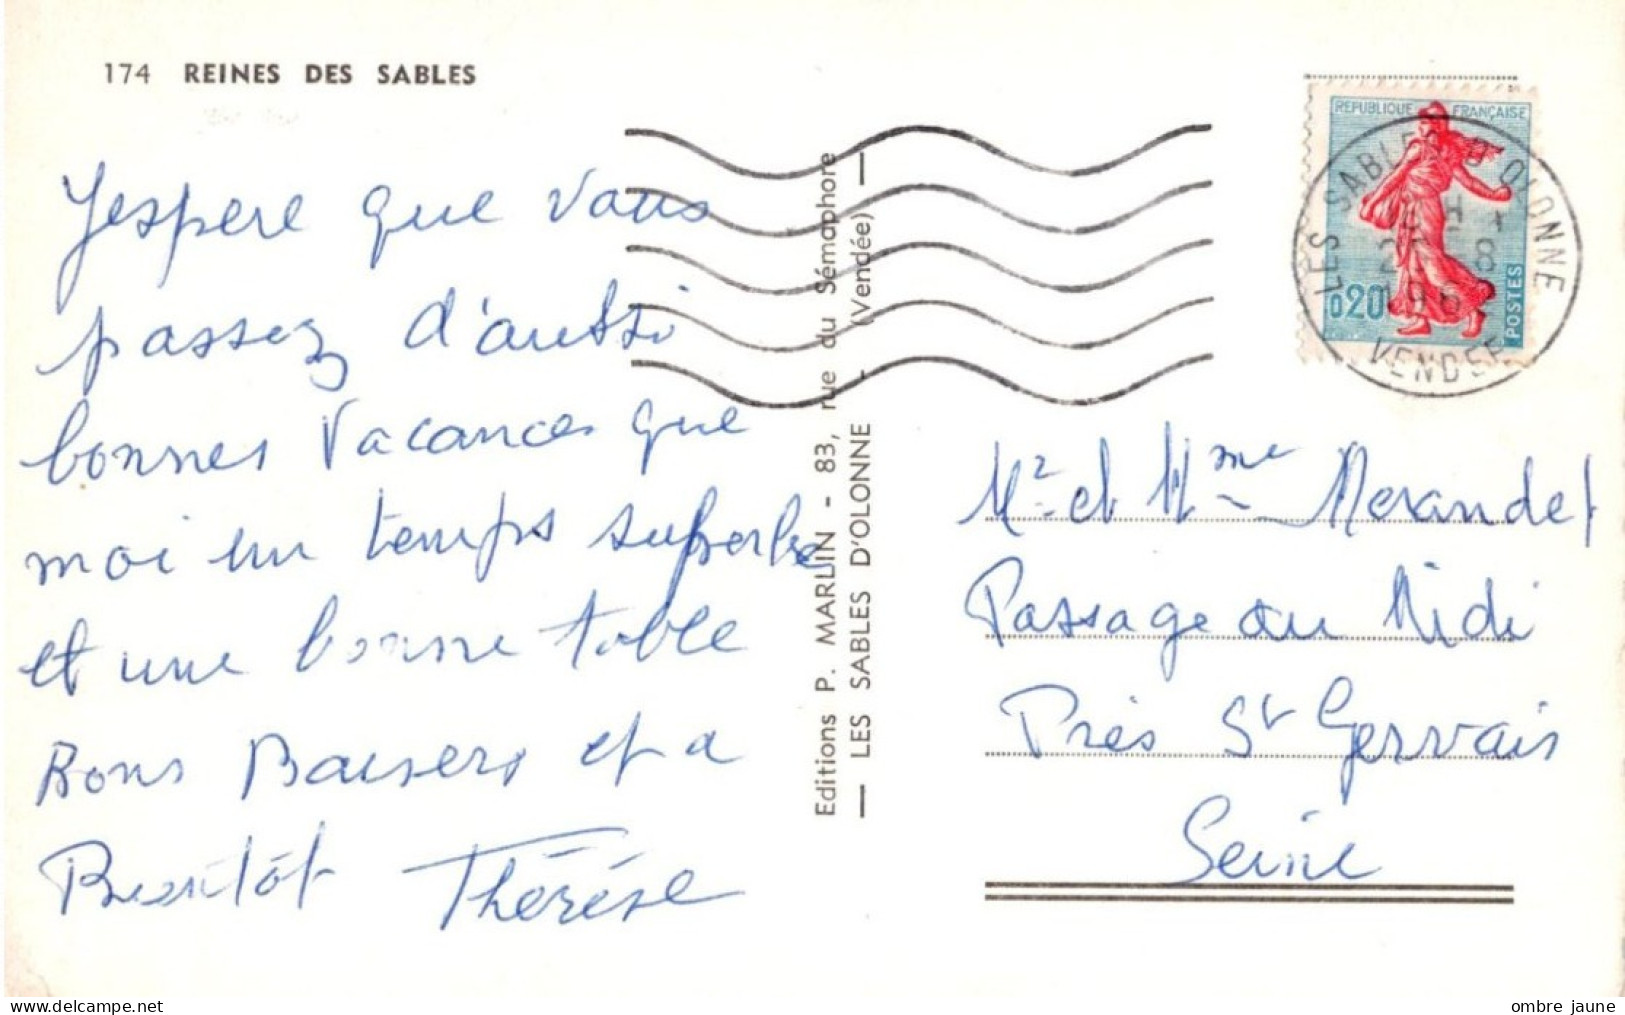 174 REINES DES SABLES
J'espere que vous
passez d'aussi
bonnes vacances que
moi un temps superbe
et une bonne table
Bons Baisers et a
Bientôt Thérèse
Editions P. MARLIN - 83, rue du Sémaphore
— LES SABLES D'OLONNE - (Vendée) —
REPUBLIQUE FRANÇAISE
0,20
POSTES
LES SABLES D'OLONNE
VENDEE
Mr et Mme Merandet
Passage du Midi
Près St Gervais
Seine
https://www.delcampe.net
ombre jaune